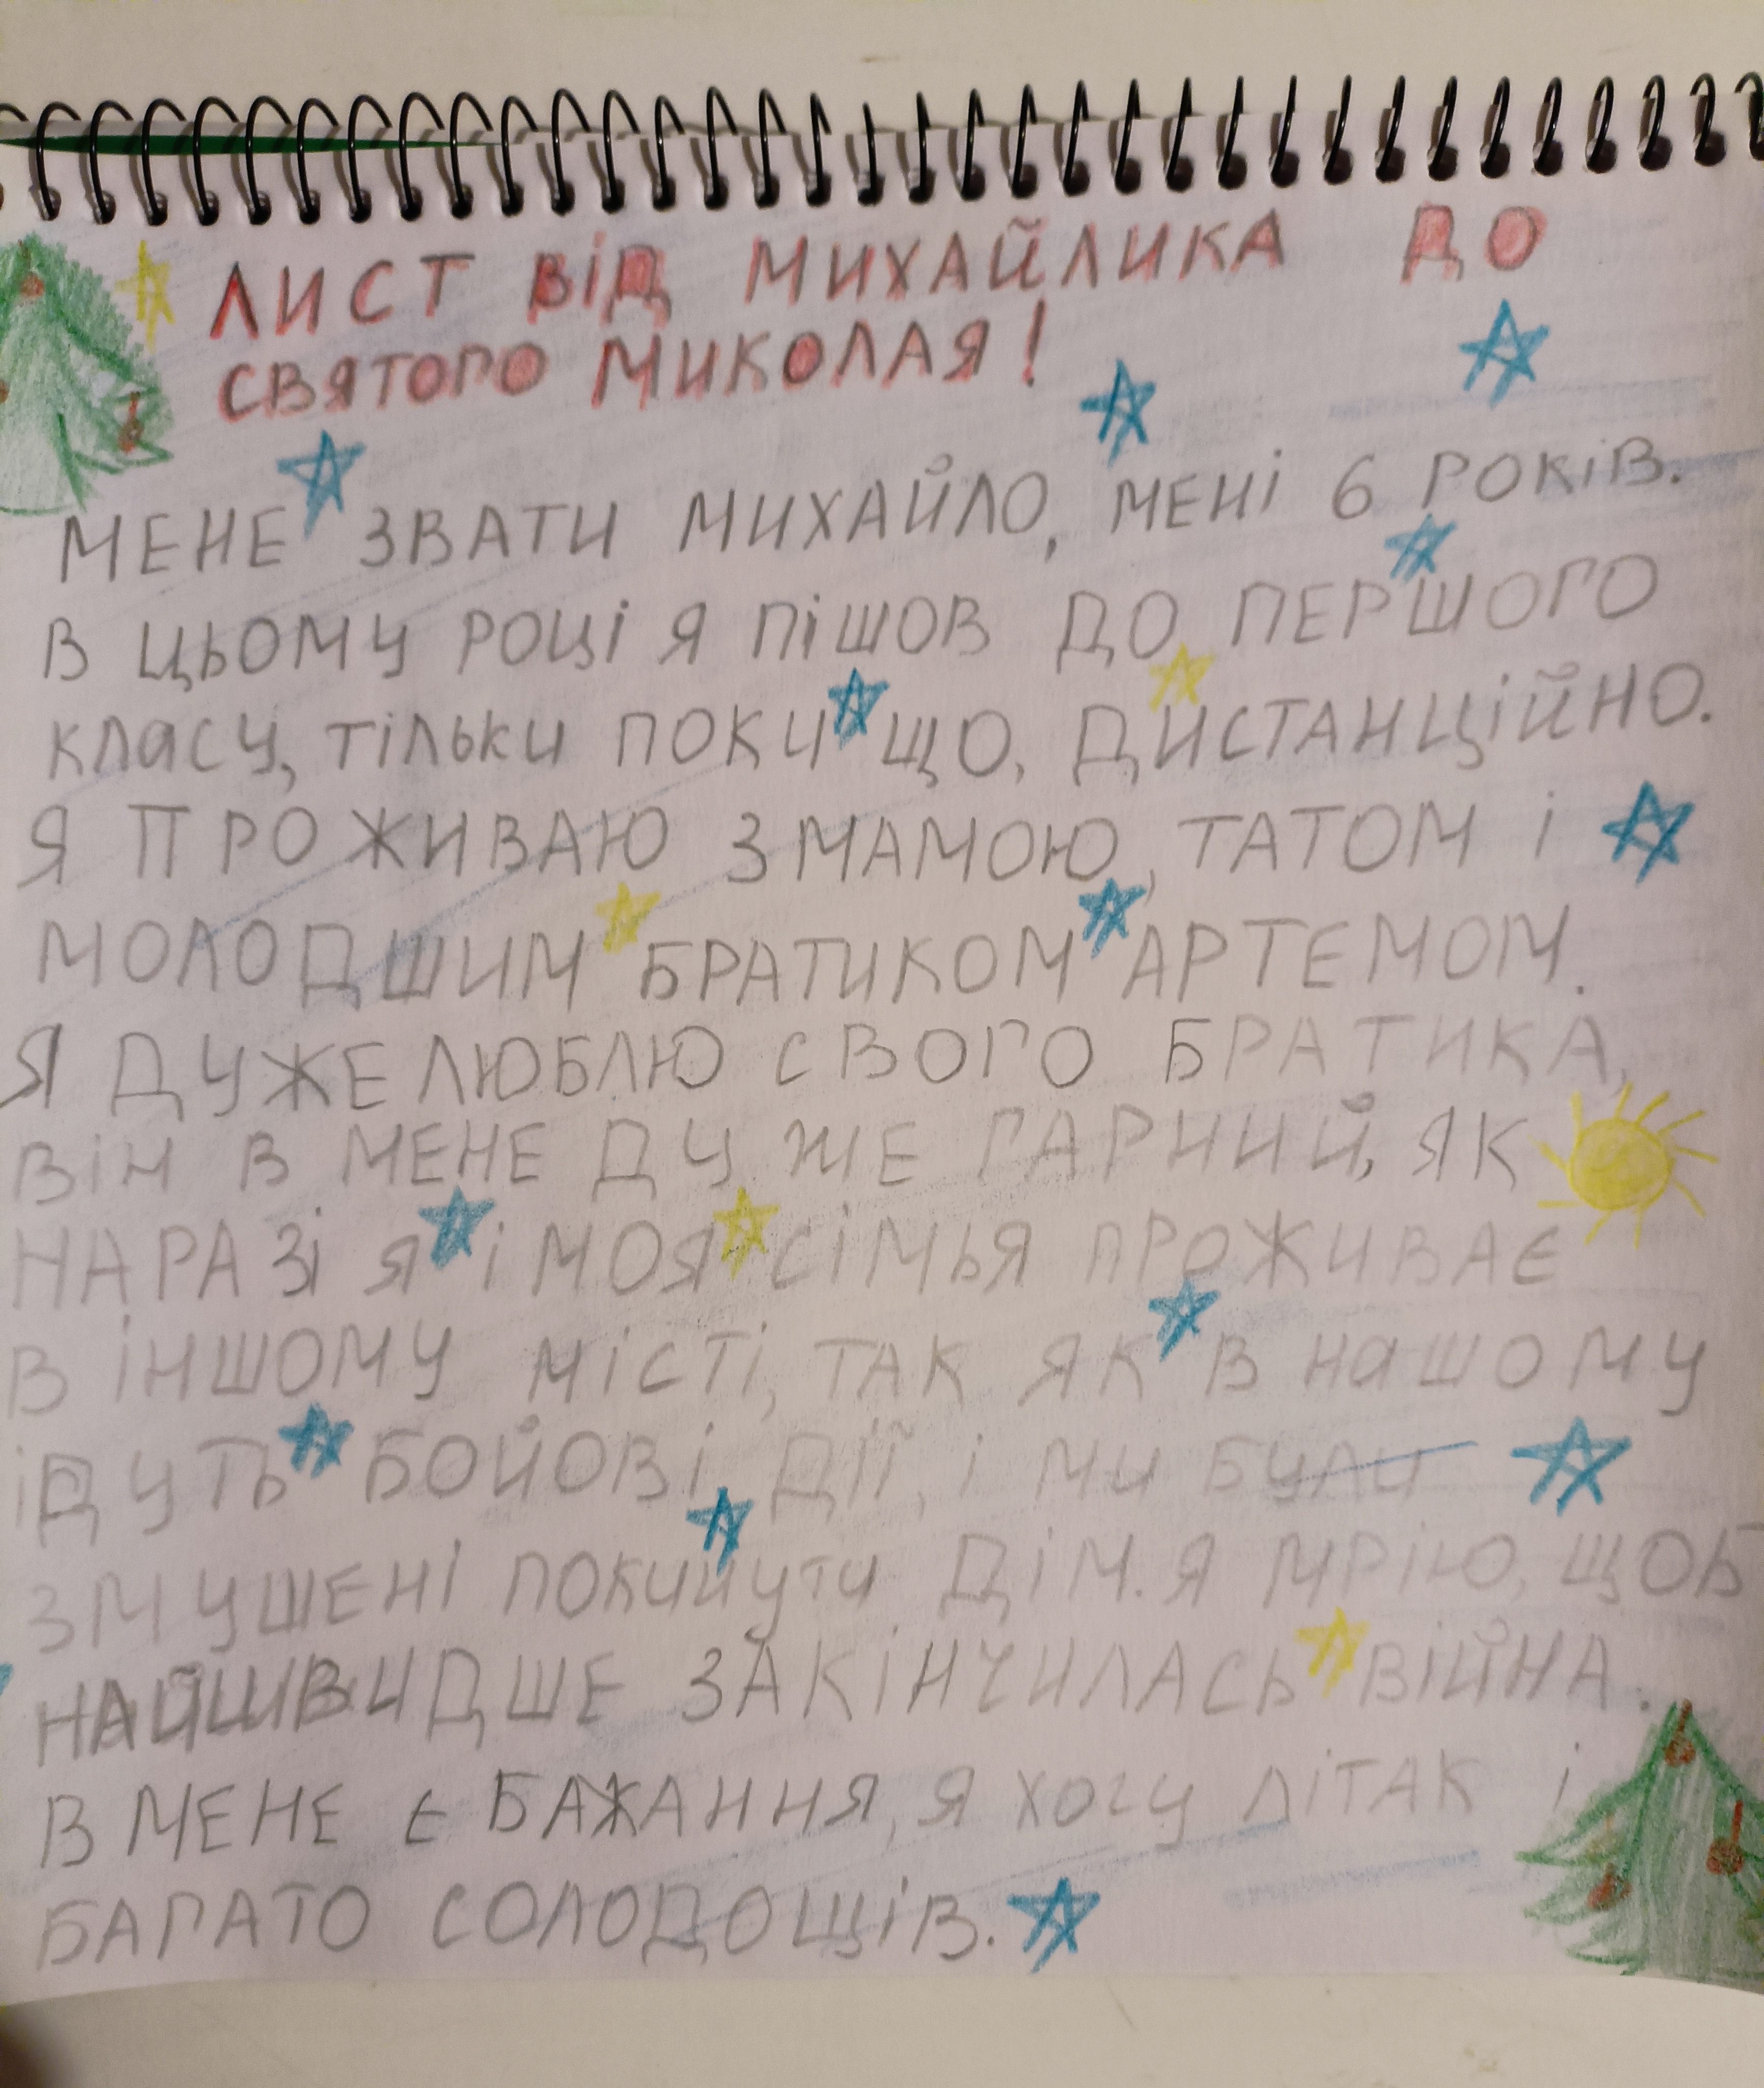 ЛИСТ ВІД МИХАЙЛИКА ДО
СВЯТОГО МИКОЛАЯ!
МЕНЕ ЗВАТИ МИХАЙЛО, МЕНІ 6 РОКІВ.
В ЦЬОМУ РОЦІ Я ПІШОВ ДО ПЕРШОГО
КЛАСУ, ТІЛЬКИ ПОКИ ЩО, ДИСТАНЦІЙНО.
Я ПРОЖИВАЮ З МАМОЮ, ТАТОМ І
МОЛОДШИМ БРАТИКОМ АРТЕМОМ.
Я ДУЖЕ ЛЮБЛЮ СВОГО БРАТИКА,
ВІН В МЕНЕ ДУЖЕ ГАРНИЙ, ЯК
НАРАЗІ Я І МОЯ СІМЬЯ ПРОЖИВАЄ
В ІНШОМУ МІСТІ, ТАК ЯК В НАШОМУ
ІДУТЬ БОЙОВІ ДІЇ, І МИ БУЛИ
ЗМУШЕНІ ПОКИНУТИ ДІМ. Я МРІЮ, ЩОБ
НАЙШВИДШЕ ЗАКІНЧИЛАСЬ ВІЙНА.
В МЕНЕ Є БАЖАННЯ, Я ХОЧУ ЛІТАК І
БАГАТО СОЛОДОЩІВ.